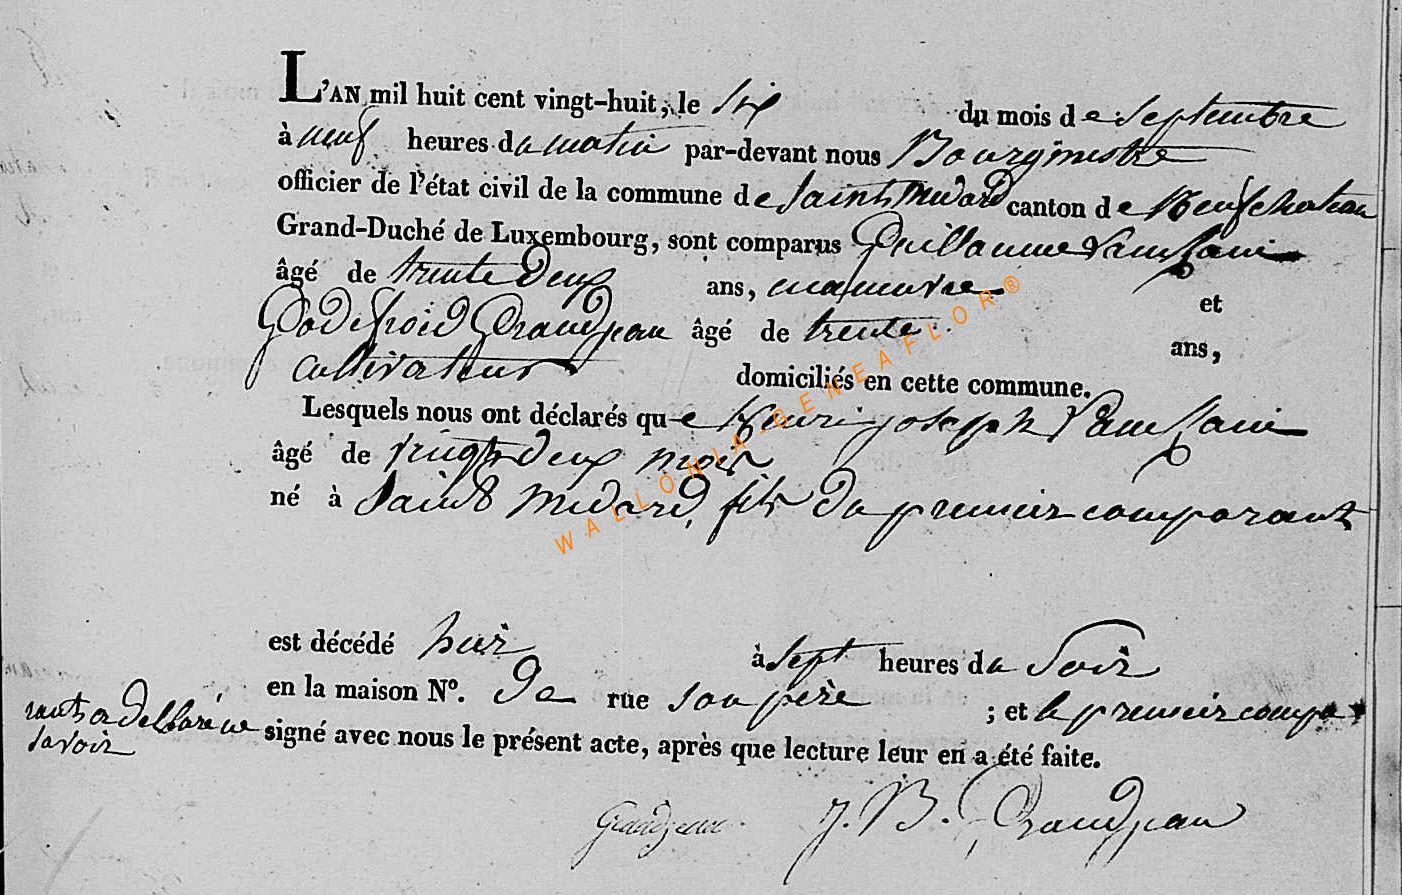 L'AN mil huit cent vingt-huit, le Six du mois de Septembre
à neuf heures du matin par-devant nous Bourgmestre
officier de l'état civil de la commune de Saint Médard canton de Neufchateau
Grand-Duché de Luxembourg, sont comparus Guillaume
âgé de trente deux ans, manuvre et
Godefroid Grandjean âgé de trente ans,
cultivateur domiciliés en cette commune.
Lesquels nous ont déclarés que Henri joseph
âgé de vingt deux mois
né à Saint Médard, fils du premier comparant
est décédé hier à Sept heures du Soir
en la maison Nº. De rue son père ; et le premier compa
rants a declaré ne
savoir
signé avec nous le présent acte, après que lecture leur en a été faite.
Grandjean J. B. Grandjean
WALLONIA-GENEAFLOR®